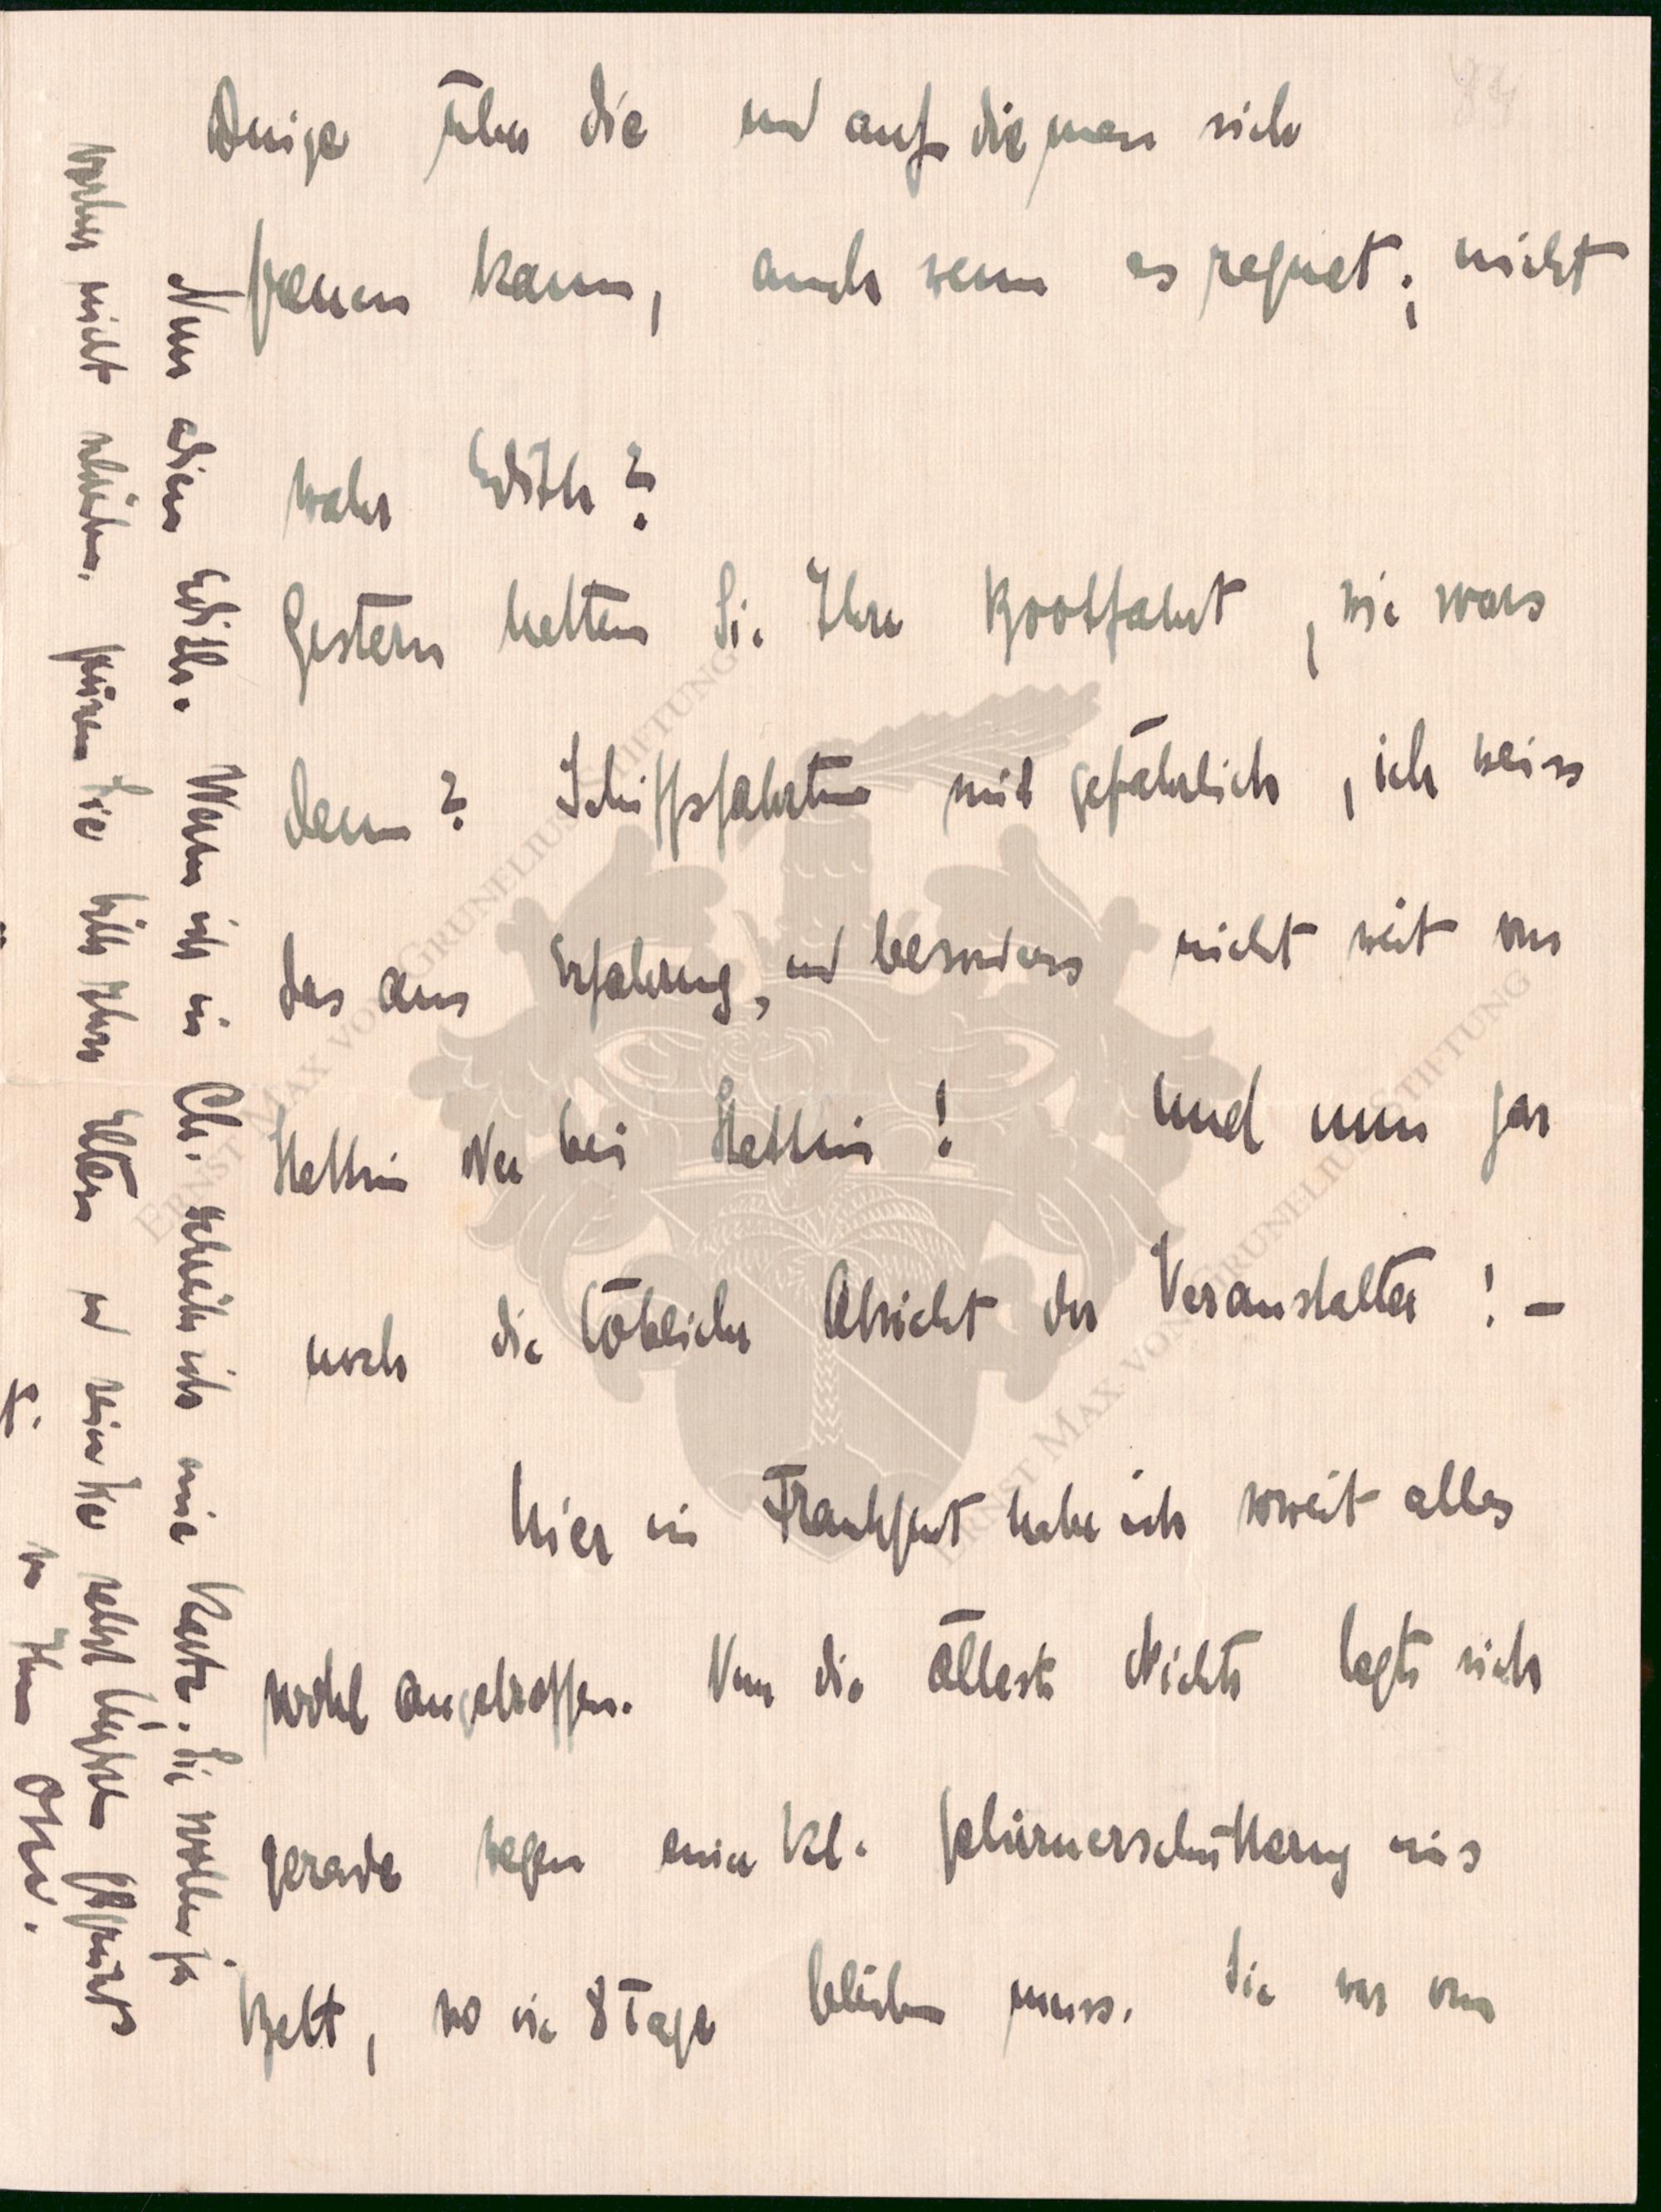 84
Dinge über die und auf die man sich
freuen kann, auch wenn es regnet; nicht
wahr Edith?
Gestern hatten Sie Ihre Bootfahrt, wie wars
denn? Schiffsfahrten sind gefährlich, ich weiss
das aus Erfahrung, und besonders nicht weit von
Stettin oder bei Stettin! Und nun gar
noch die löbliche Absicht der Veranstalter! -
Hier in Frankfurt habe ich soweit alles
wohl angetroffen. Nur die älteste Nichte legte sich
gerade wegen einer kl. Gehirnerschütterung ins
Bett, wo sie 8 Tage bleiben muss. Sie war von
Nun adieu Edith. Wenn ich in Ch. schreibe ich eine Karte. Sie wollen ja
vorher nicht schreiben. Grüssen Sie bitte Ihre Eltern und seien Sie selbst herzlich gegrüsst
von Ihrem Otto.
ERNST MAX VON GRUNELIUS STIFTUNG
ERNST MAX VON GRUNELIUS STIFTUNG